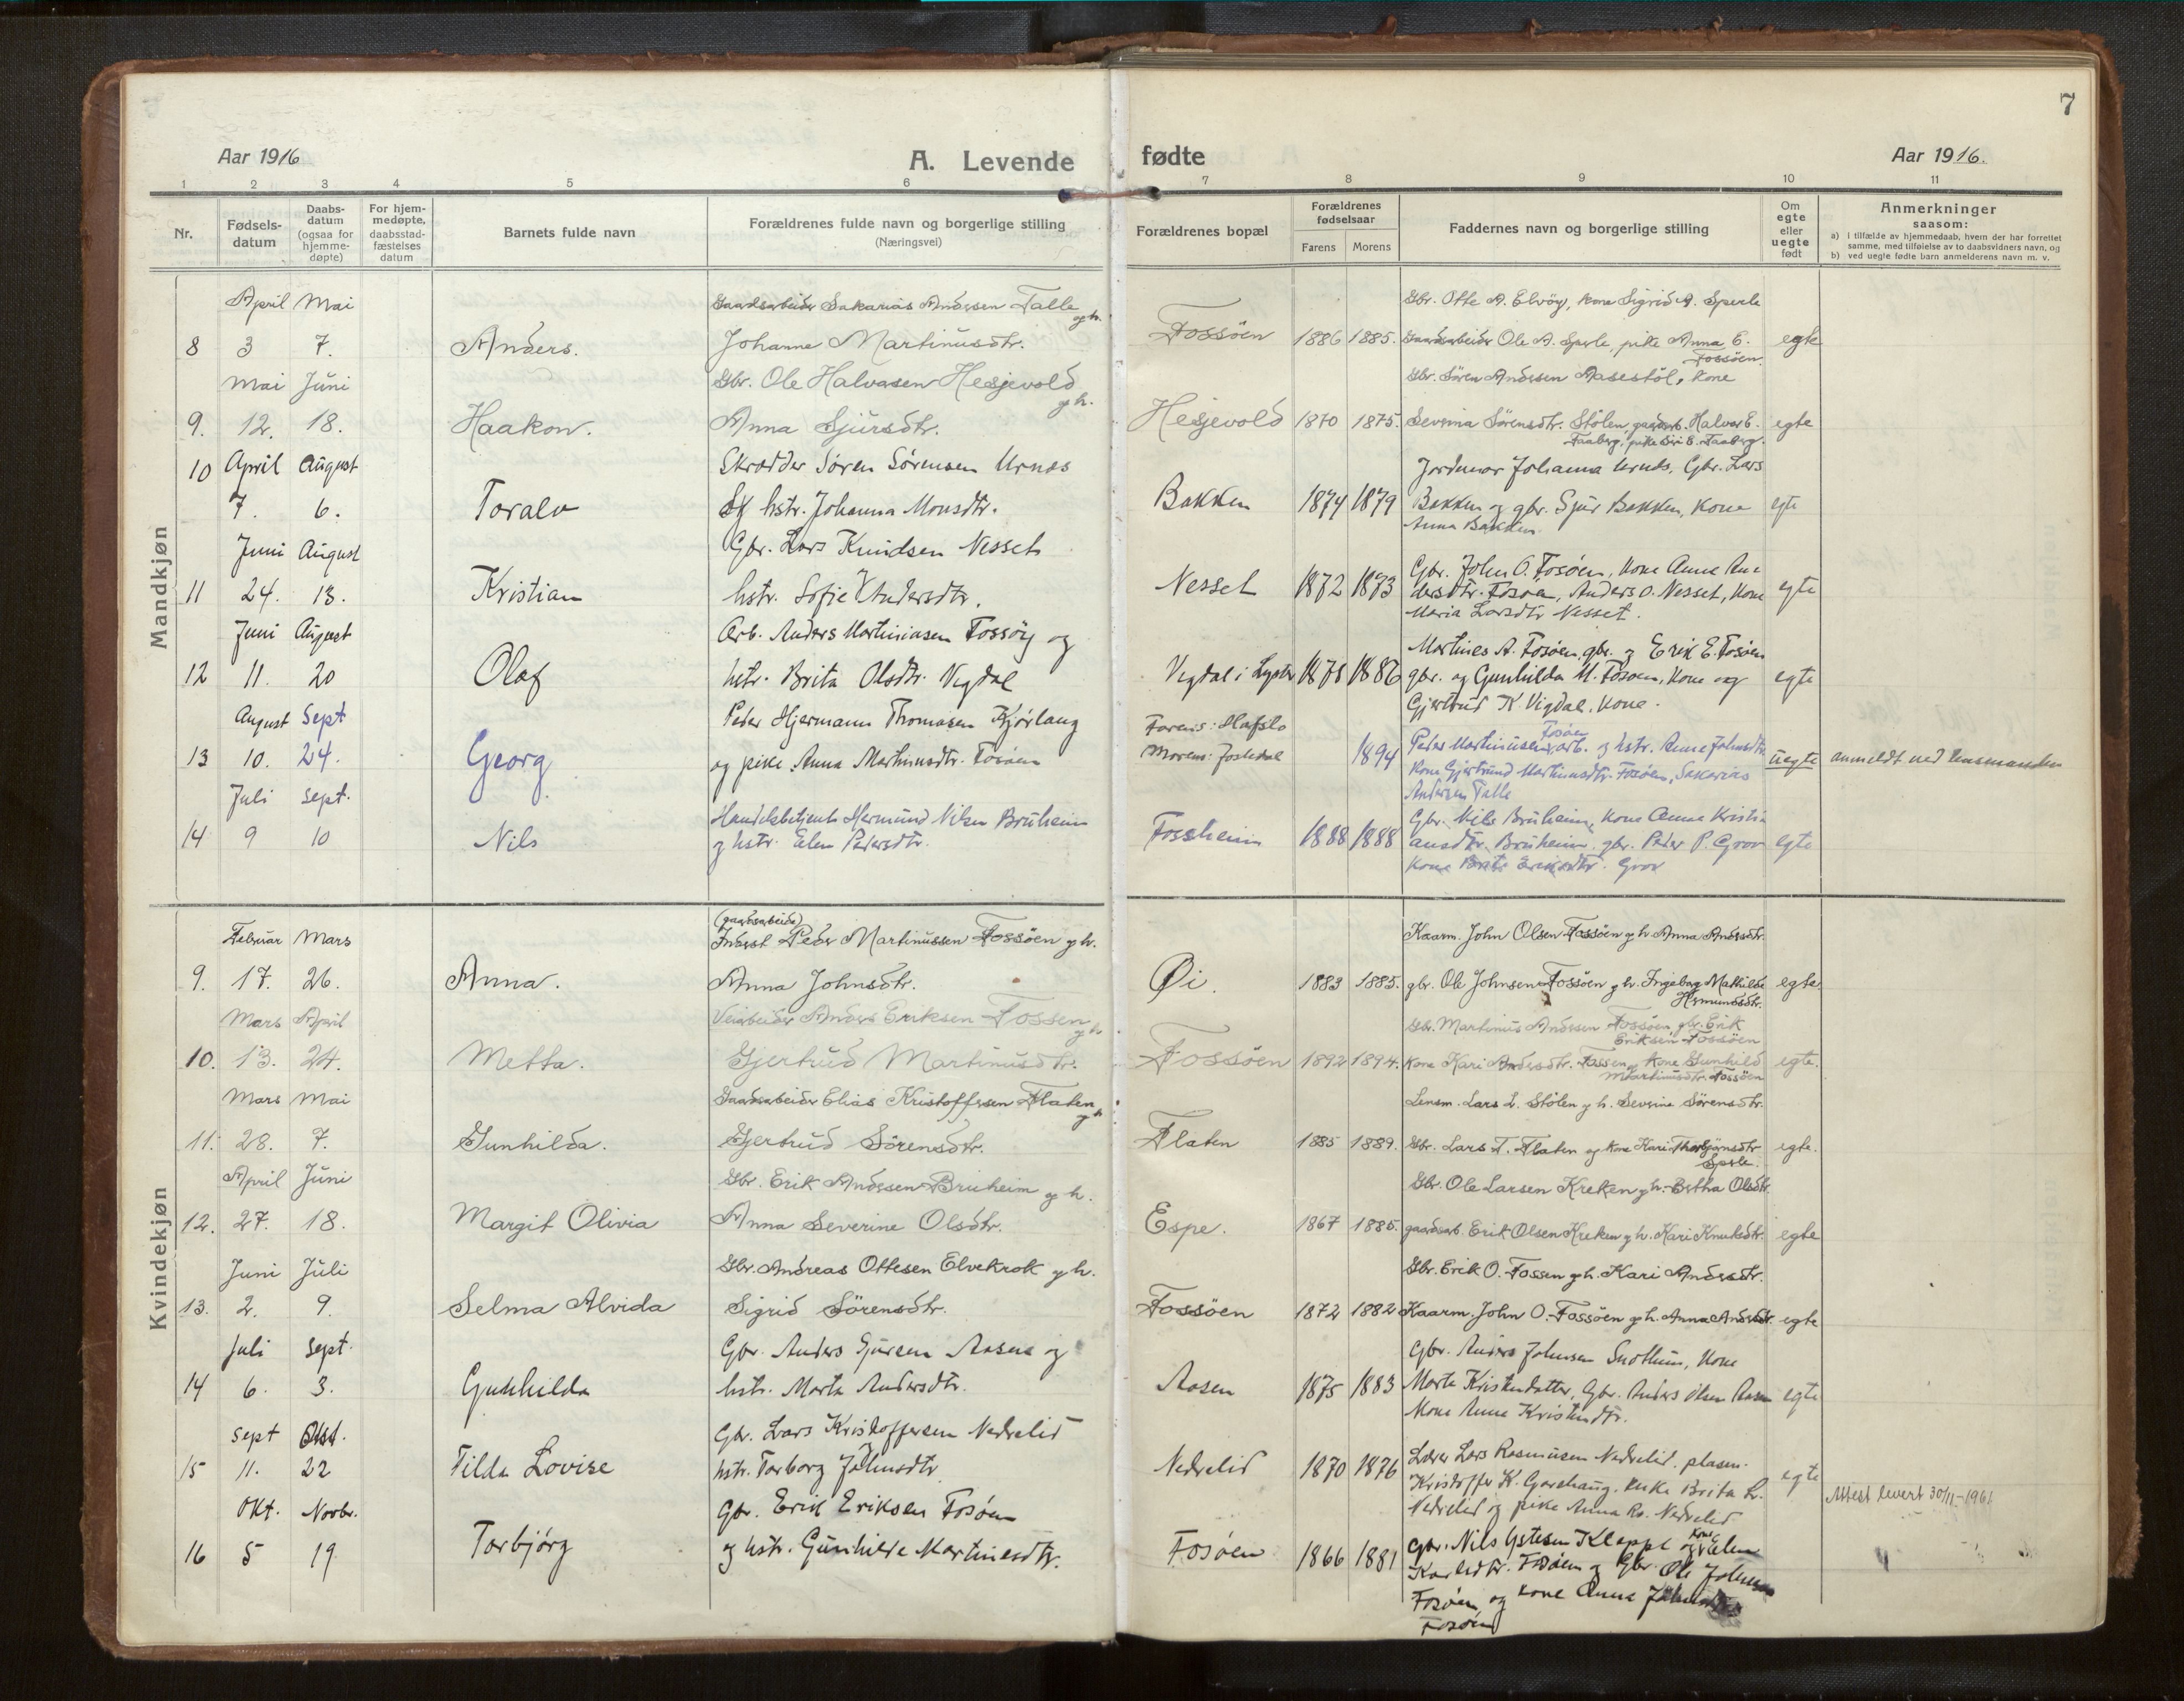 7
Aar 1916
A. Levende
fødte
Aar 1916.
1 2 3 4 5 6 7 8 9 10 11
Nr.
Fødsels-
datum
Daabs-
datum
(ogsaa for
hjemme-
døpte)
For hjem-
medøpte,
daabsstad-
fæstelses
datum
Barnets fulde navn
Forældrenes fulde navn og borgerlige stilling
(Næringsvei)
Forældrenes bopæl
Forældrenes
fødselsaar
Farens Morens
Faddernes navn og borgerlige stilling
Om
egte
eller
uegte
født
Anmerkninger
saasom:
a) i tilfælde av hjemmedaab, hvem der har forrettet
samme, med tilføielse av to daabsvidners navn, og
b) ved uegte fødte barn anmelderens navn m. v.
Mandkjøn
April Mai
8 3 7. Anders.
Gaardsarbeider Sakarias Andersen Talle og h.
Johanne Martinusdtr.
Fossöen 1886 1885.
Gbr. Otte A. Elvöy, kone Sigrid A. Sperle
Gaardsarbeider Ole A. Sperle, pike Anna E.
Fossöen.
egte
Mai Juni
9. 12. 18. Haakon.
Gbr. Ole Halvasen Hesjevold og h.
Anna Sjursdtr.
Hesjevold 1870 1875.
Gbr. Sören Andersen Aasestöl, kone
Severina Sörensdtr. Stölen, gaardarb. Halvor E.
Faaberg, pike Siri E. Faaberg.
egte
April August
10 7. 6. Toralv
Skrædder Søren Sørensen Urnes
hstr. Johanna Monsdtr.
Bakken 1874 1879
Jordmor Johanna Urnes, Gbr. Lars
Bakken og gbr. Sjur Bakken, kone
Anna Bakken.
egte
Juni August
11 24. 13. Kristian
Gbr. Lars Knudsen Nesset
hstr. Sofie Andersdtr.
Nesset 1872 1873
Gbr. John O. Fosøen, kone Anna An
dersdtr. Fosøen, Anders O. Nesset, kone
Maria Larsdtr Nesset.
egte
Juni August
12 11. 20 Olaf
Arb. Anders Martiniasen Fossøy og
hstr. Brita Olsdtr. Vigdal
Vigdal i Lyster 1878 1886
Martines A. Fosøen, gbr. og Erik E. Fosøen
gbr. og Gunhilda M. Fosøen, kone og
Gjertrud K. Vigdal, kone.
egte
August Sept
13 10. 24. Georg
Peder Hjermann Thomasen Kjørlaug
og pike Anna Martinusdtr. Fosøen
Farens: Hafslo
Morens: Jostedal
1894
Peder Martinusen Fosøen arb. og hstr. Anna Johnsdtr.
kone Gjertrund Martinusdtr. Fosøen, Sakarias
Andersen Talle
uegte
anmeldt ved lensmanden
Juli Sept.
14 9 10 Nils
Handelsbetjent Hermund Nilsen Bruheim
og hstr. Elen Pedersdtr.
Fossheim 1888 1888
Gbr. Nils Bruheim, kone Anna Kristi
ansdtr. Bruheim, gbr. Peder P. Grov
kone Brita Eriksdtr. Grov
egte
Kvindekjøn
Februar Mars
9. 17. 26. Anna.
(gaardsarbeider)
Inderst Peder Martinussen Fossöen og h.
Anna Johnsdtr.
Øi. 1883 1885.
Kaarm. John Olsen Fossöen og h. Anna Andersdtr.
gbr. Ole Johnsen Fossöen og h. Ingeborg Mathilde
Hermundsdtr.
egte.
Mars April
10. 13. 24. Metta.
Veiarbeider Anders Eriksen Fossen og h
Gjertrud Martinusdtr.
Fossöen 1892 1894.
Gbr. Martinus Andersen Fossöen, gbr. Erik
Eriksen Fossöen
kone Kari Andersdtr. Fossen, kone Gunhild
Martinusdtr. Fossöen
egte.
Mars Mai
11. 28. 7. Gunhilda.
Gaardsarbeider Elias Kristoffersen Flaten og h
Gjertrud Sörensdtr.
Flaten 1885 1889.
Lensm. Lars L. Stölen og h. Severine Sörensdtr.
Gbr. Lars T. Flaten og kone Kari Thorbjörnsdtr
Sperle.
egte.
April Juni
12. 27. 18. Margit Olivia
Gbr. Erik Andersen Bruheim og h.
Anna Severine Olsdtr.
Espe. 1867 1885.
Gbr. Ole Larsen Kreken og h. Bertha Olsdtr.
gaardsarb. Erik Olsen Kreken og h. Kari Knutsdtr.
egte
Juni Juli
13. 2. 9. Selma Alvida
Gbr. Andreas Ottesen Elvekrok og h.
Sigrid Sörensdtr.
Fossöen 1872 1882
Gbr. Erik O. Fossen og h. Kari Andersdtr.
Kaarm. John O. Fossöen og h. Anna Andersdtr.
egte
Juli Sept.
14 6. 3. Gunhilda
Gbr. Anders Sjursen Aasen og
hstr. Marta Andersdtr.
Aasen 1875 1883
Gbr. Anders Johnsen Snøthun, kone
Marta Kristendatter, Gbr. Anders Olsen Aasen
kone Anna Kristendtr.
egte
Sept Okt.
15 11. 22 Tilda Lovise
Gbr. Lars Kristoffersen Nedrelid
hstr. Torborg Johnsdtr
Nedrelid 1870 1876
Lærer Lars Rasmusen Nedrelid, plasm.
Kristoffer K. Gjershaug, enke Brita L.
Nedrelid og pike Anna R. Nedrelid
egte
Attest levert 30/11-1961
Okt. Novbr.
16 5 19 Torbjörg
Gbr. Erik Eriksen Fosøen
og hstr. Gunhilda Martinesdtr.
Fosøen 1866 1881
Gbr. Nils Ystesen Kleppe og kone Elen
Karlsdtr. Fosøen og Gbr. Ole Johnsen
Fosøen og kone Anna Johnsdtr
Fosøen